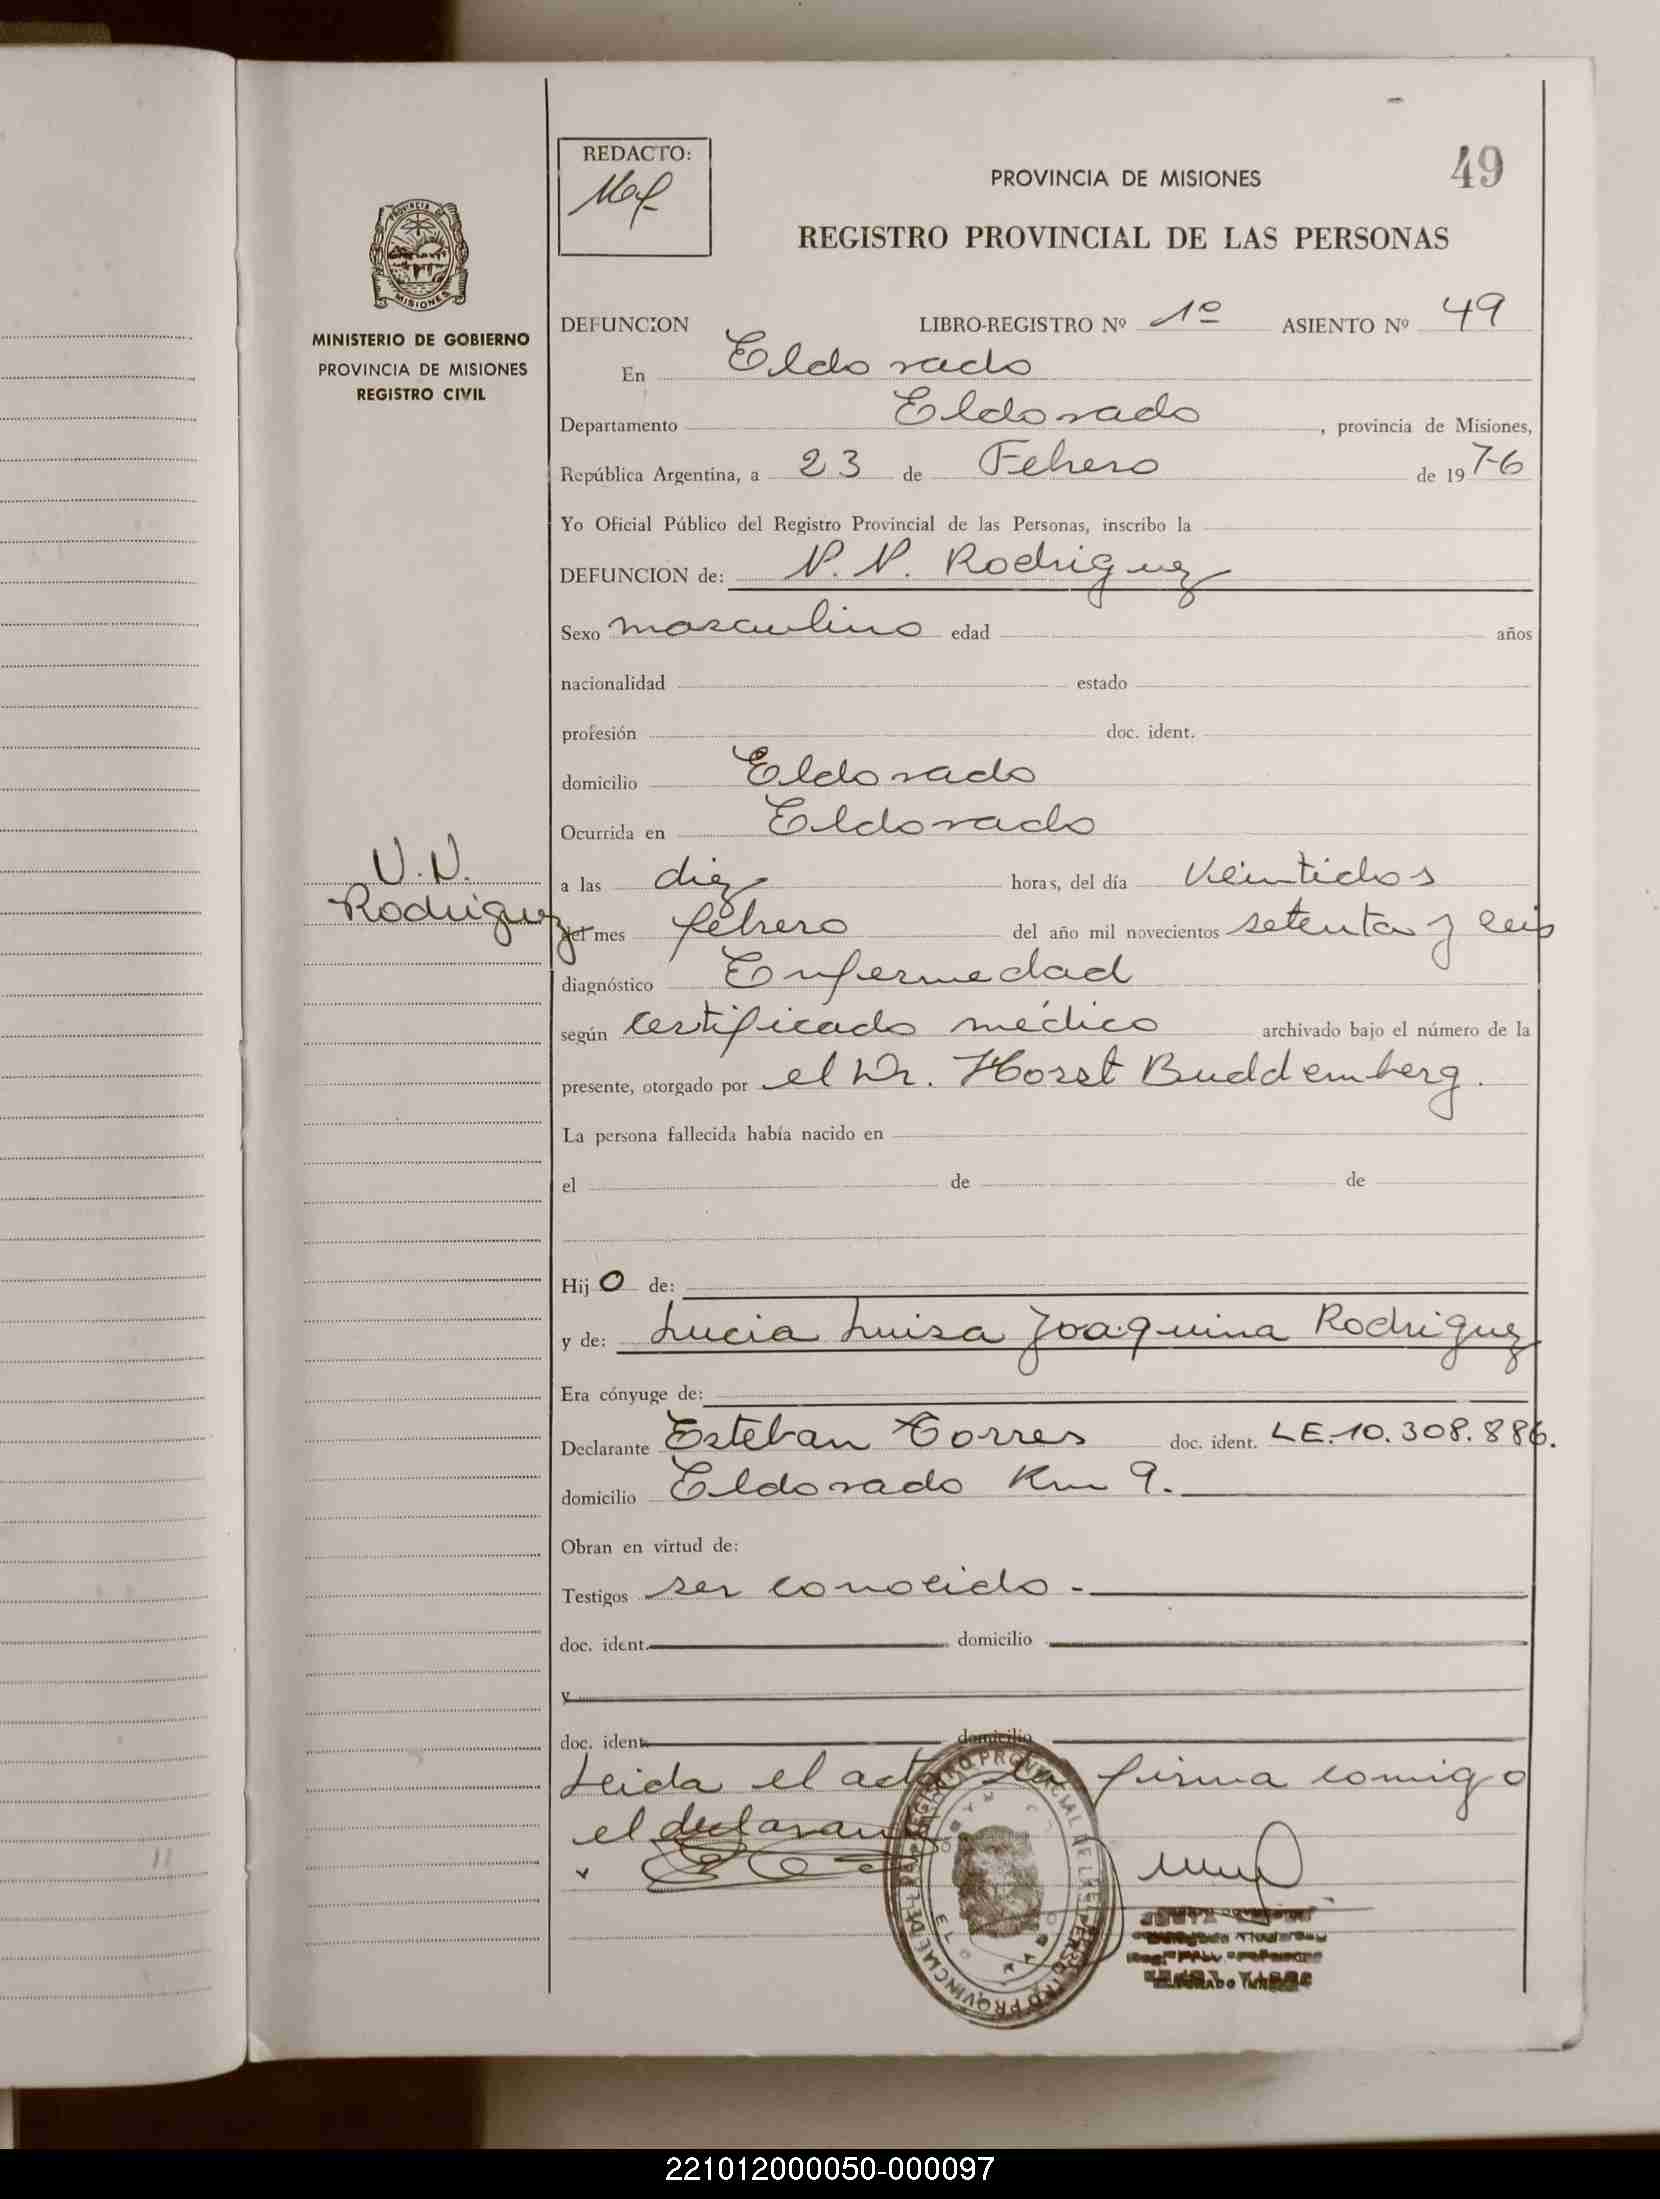 REDACTO:
49
PROVINCIA DE MISIONES
REGISTRO PROVINCIAL DE LAS PERSONAS
PROVINCIA DE
MISIONES
MINISTERIO DE GOBIERNO
PROVINCIA DE MISIONES
REGISTRO CIVIL
DEFUNCION LIBRO-REGISTRO Nº 1º ASIENTO Nº 49
En Eldorado
Departamento Eldorado, provincia de Misiones,
República Argentina, a 23 de Febrero de 1976
Yo Oficial Público del Registro Provincial de las Personas, inscribo la
DEFUNCION de: N. N. Rodriguez
Sexo masculino edad años
nacionalidad estado
profesión doc. ident.
domicilio Eldorado
Ocurrida en Eldorado
N.N.
Rodriguez
a las diez horas, del día veintidos
del mes febrero del año mil novecientos setenta y seis
diagnóstico Enfermedad
según certificado médico archivado bajo el número de la
presente, otorgado por el Dr. Horst Buddemberg.
La persona fallecida había nacido en
el de de
Hijo de:
y de: Lucia Luisa Joaquina Rodriguez
Era cónyuge de:
Declarante Esteban Torres doc. ident. LE.10.308.886.
domicilio Eldorado Km 9.
Obran en virtud de:
Testigos ser conocido.-
doc. ident. domicilio
y
doc. ident. domicilio
Leida el acta la firma comigo
el declarante
221012000050-000097